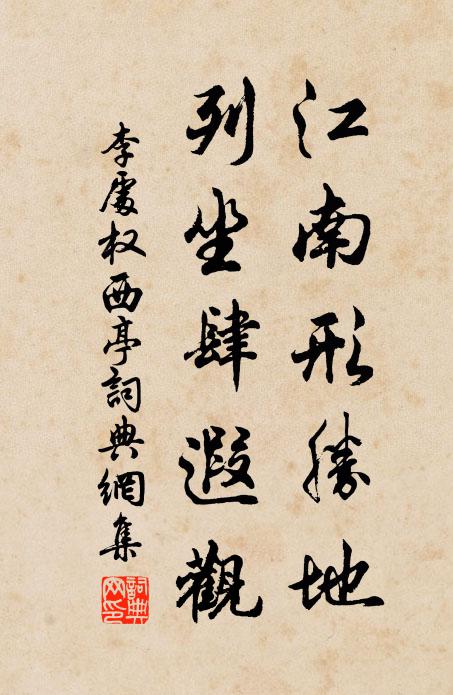 江南形勝地
列坐肆遐觀
李處权西亭詞典網集
詞典网印